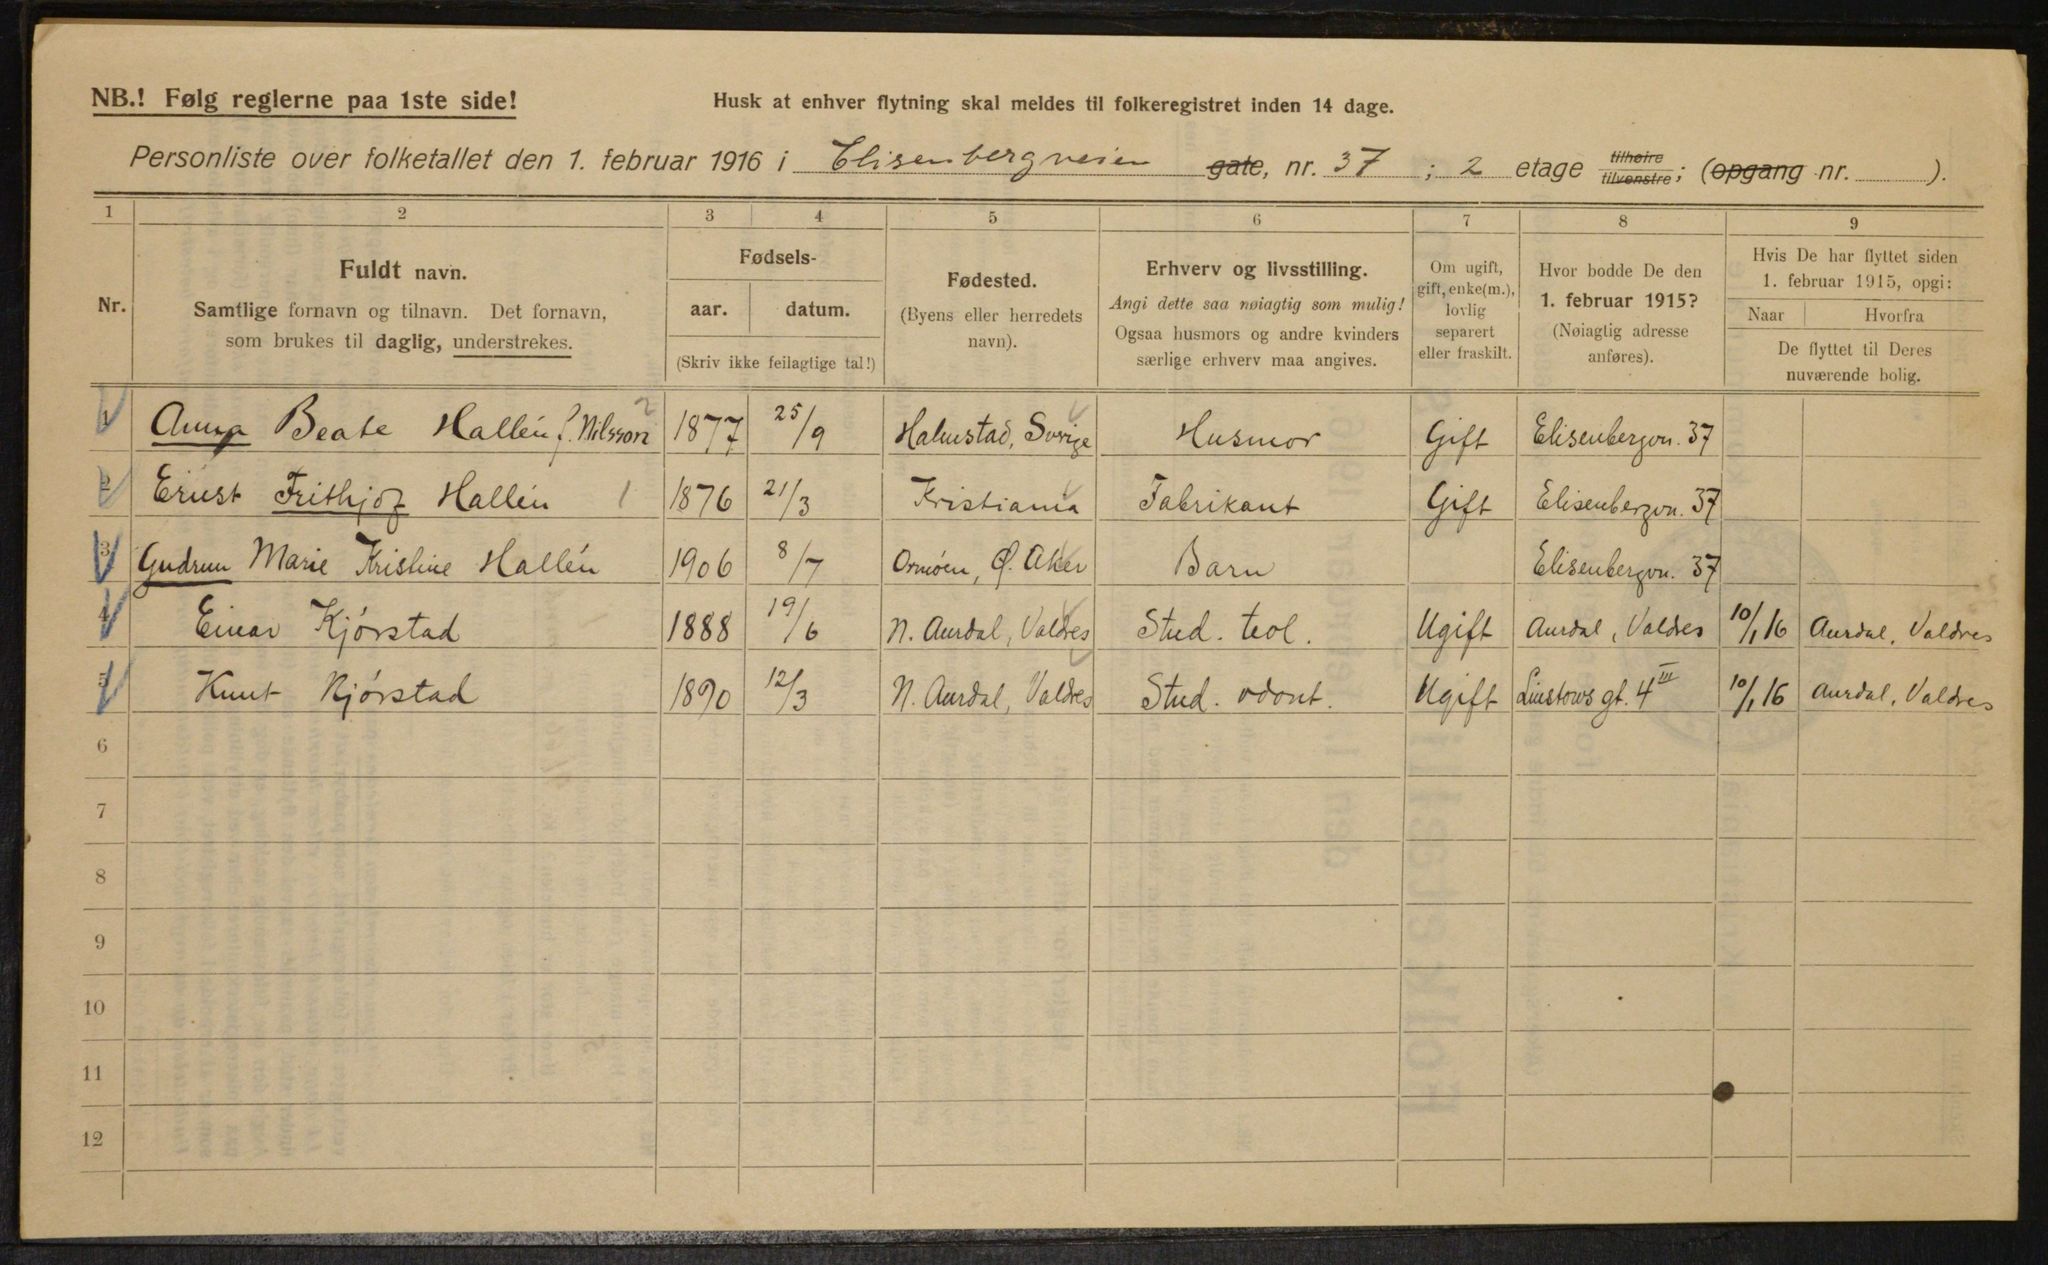 NB.! Følg reglerne paa 1ste side!
Husk at enhver flytning skal meldes til folkeregistret inden 14 dage.
Personliste over folketallet den 1. februar 1916 i Elisenbergveien gate, nr. 37 ; 2 etage tilhøire tilvenstre; (opgang nr. ).
1 2 3 4 5 6 7 8 9
Nr.
Fuldt navn.
Samtlige fornavn og tilnavn. Det fornavn,
som brukes til daglig, understrekes.
Fødsels-
aar. datum.
(Skriv ikke feilagtige tal!)
Fødested.
(Byens eller herredets
navn).
Erhverv og livsstilling.
Angi dette saa nøiagtig som mulig!
Ogsaa husmors og andre kvinders
særlige erhverv maa angives.
Om ugift,
gift, enke(m.),
lovlig
separert
eller fraskilt.
Hvor bodde De den
1. februar 1915?
(Nøiagtig adresse
anføres).
Hvis De har flyttet siden
1. februar 1915, opgi:
Naar Hvorfra
De flyttet til Deres
nuværende bolig.
1 Anna Beate Hallén f. Nilsson 2 1877 25/9 Halmstad, Sverige Husmor Gift Elisenbergvn. 37
2 Ernst Frithjof Hallén 1 1876 21/3 Kristiania Fabrikant Gift Elisenbergvn. 37
3 Gudrun Marie Kristine Hallén 1906 8/7 Ormøen, Ø. Aker Barn Elisenbergvn. 37
4 Einar Kjørstad 1888 19/6 N. Aurdal, Valdres Stud. teol. Ugift Aurdal, Valdres 10/1 16 Aurdal, Valdres
5 Knut Kjørstad 1890 12/3 N. Aurdal, Valdres Stud. odont. Ugift Linstows gt. 4 III 10/1 16 Aurdal, Valdres
6
7
8
9
10
11
12